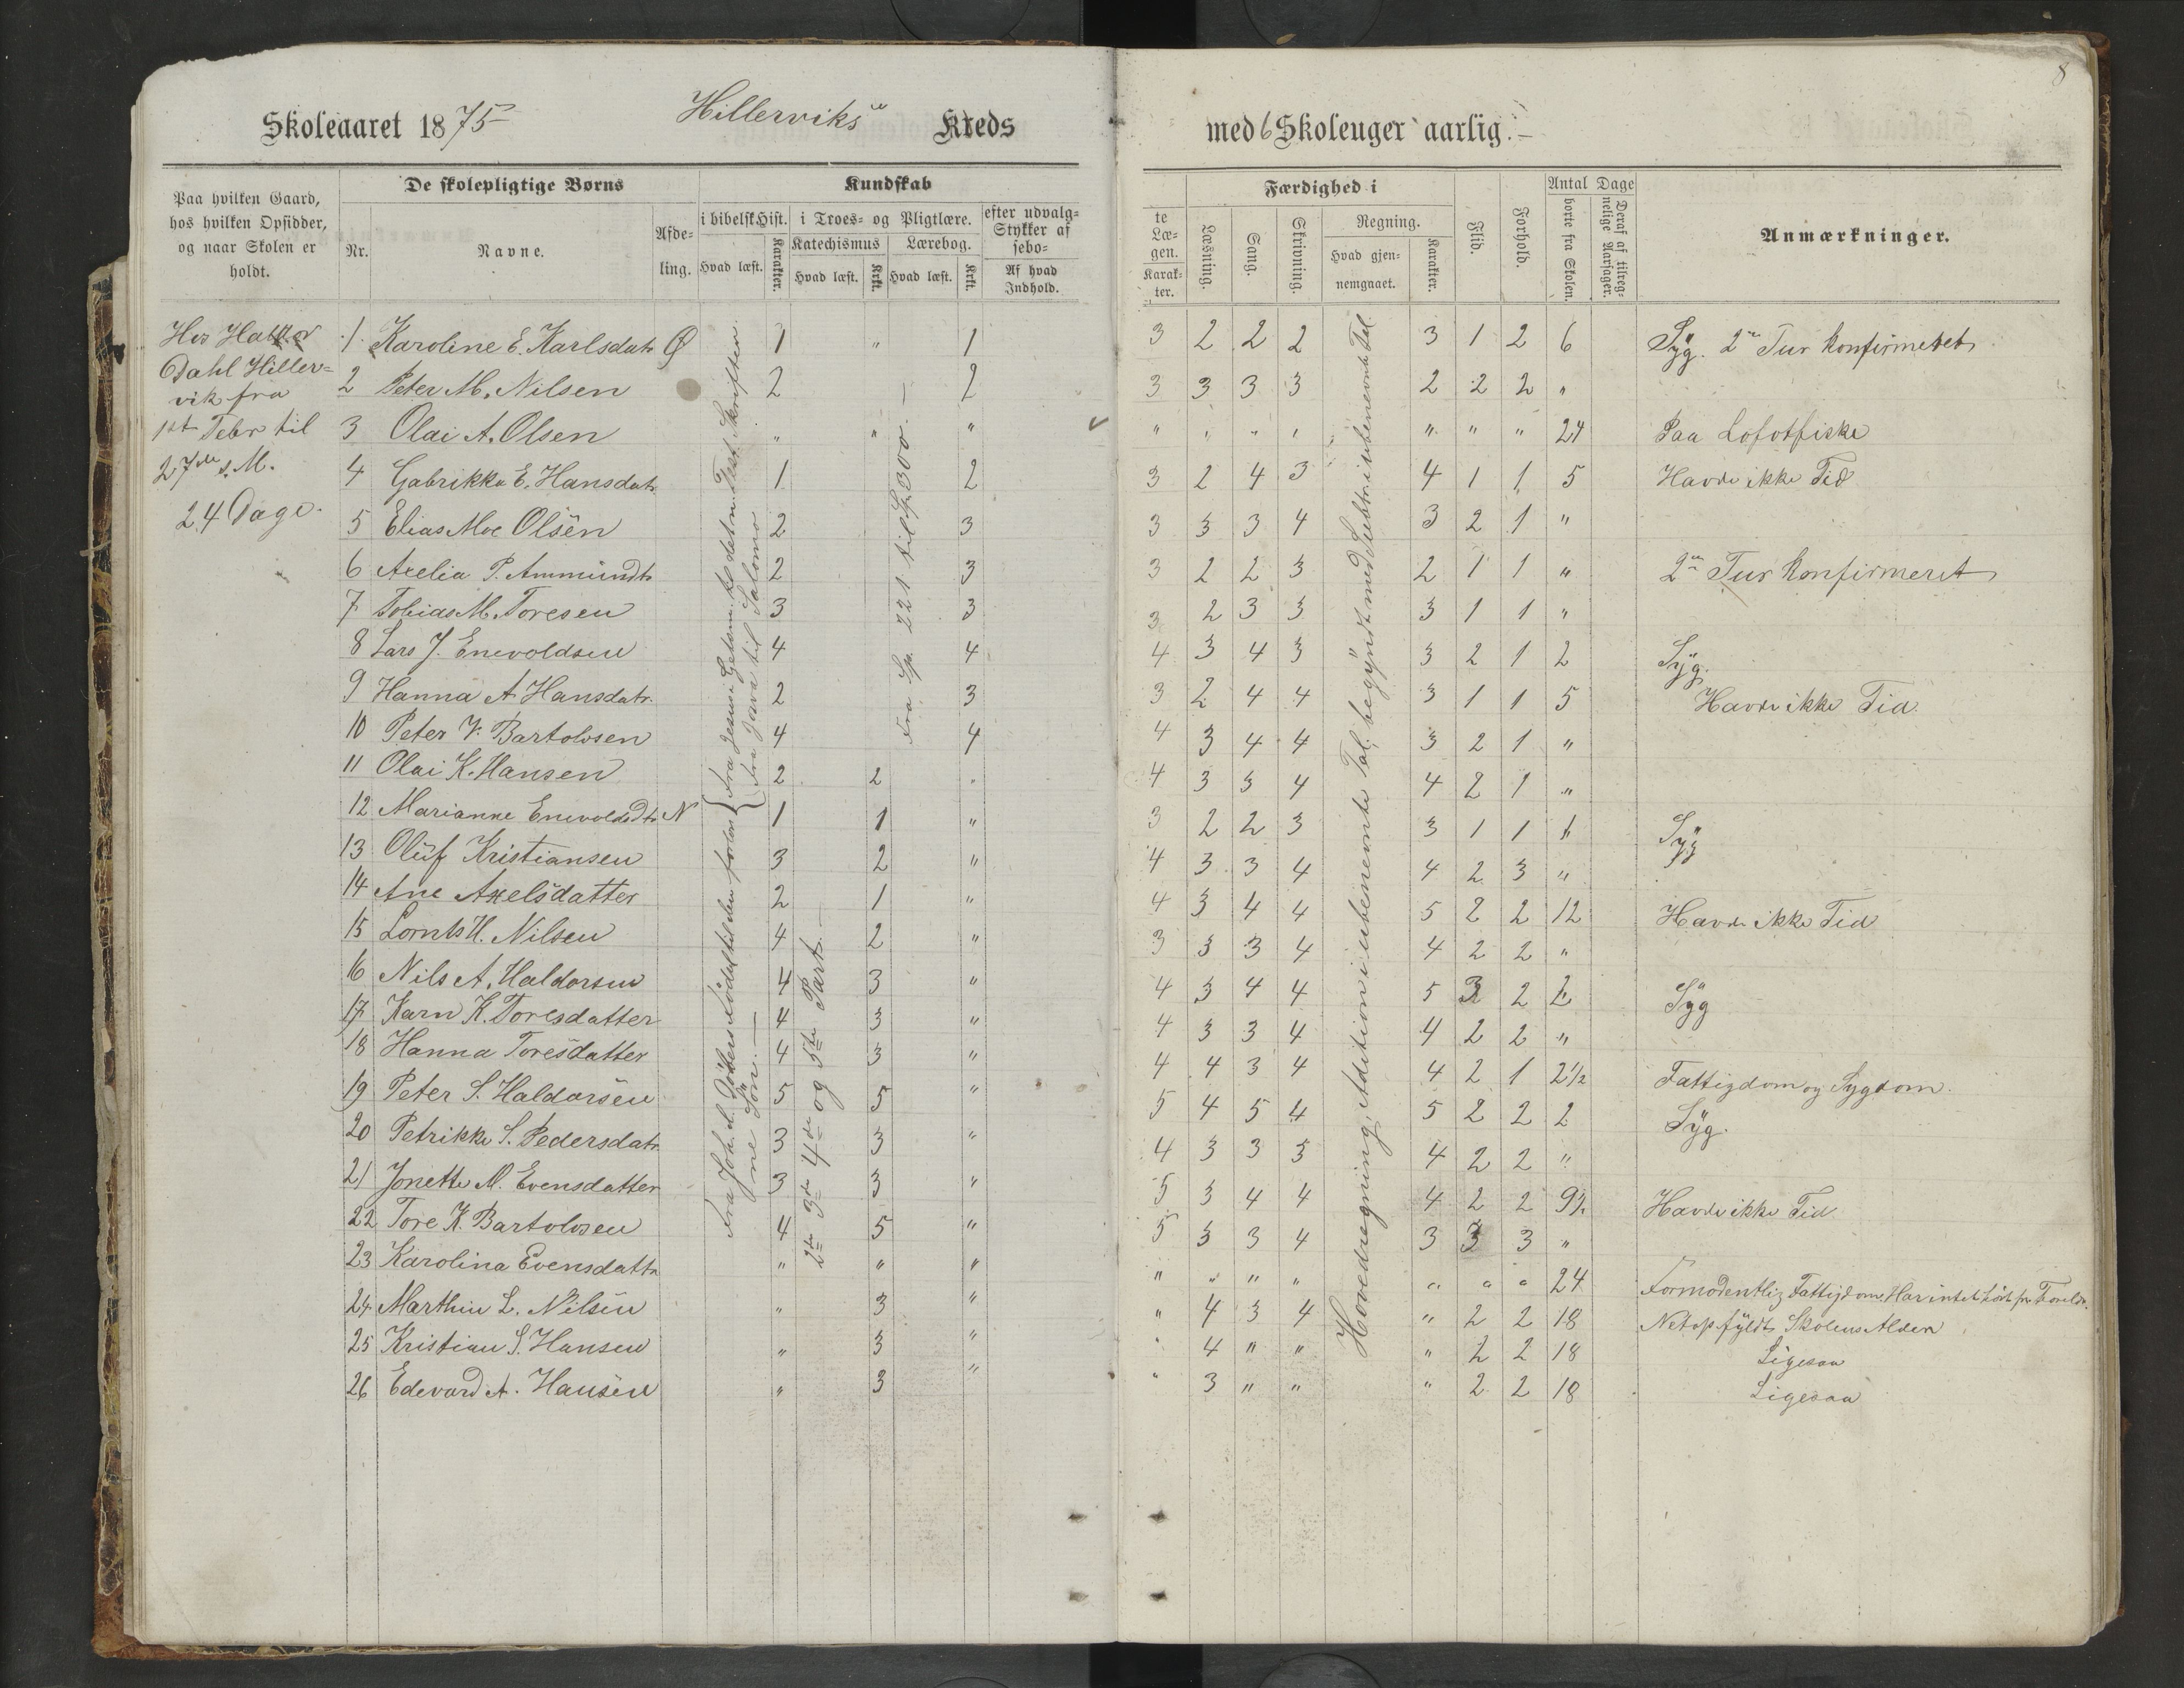 Skoleaaret 1875 Hillerviks Kreds
Paa hvilken Gaard,
hos hvilken Opsidder,
og naar Skolen er
holdt.
De skolepligtige Børns
Nr. Navne.
Afde-
ling.
Kundskab
i bibelsk Hist.
Hvad læst. Karakter.
i Troes- og Pligtlære.
Katechismus Lærebog.
Hvad læst. Krkt. Hvad læst. Krkt.
efter udvalg-
Stykker af
sebo-
Af hvad
Indhold.
Dahl Hiller-
vik fra
1st Febr til
27de s. M.
24 Dage.
1 Karoline E. Karlsdatr Ø 1 " 1
2 Peter M. Nilsen 2 2
3 Olai A. Olsen " " "
4 Gabrikke E. Hansdatr 1 2
5 Elias Moe Olsen 2 3
6 Axelia P. Ammundtr 2 3
7 Tobias M. Toresen 3 3
8 Lars J. Enevoldsen 4 4
9 Hanna A Hansdatr. 2 3
10 Peter V. Bartolosen 4 4
11 Olai K. Hansen 2 2 "
12 Marianne Enevoldsdtr N 1 1 "
13 Oluf Kristiansen 3 2 "
14 Ane Axelsdatter 2 1 "
15 Lornts H. Nilsen 4 2 "
16 Nils A. Haldorsen 4 3 "
17 Karn K. Toresdatter 4 3 "
18 Hanna Toresdatter 4 3 "
19 Peter S. Haldorsen 5 5 "
20 Petrikke S. Pedersdatr 3 3 "
21 Jonette M. Evensdatter 3 3 "
22 Tore K. Bartolosen 4 5 "
23 Karolina Evensdattr " " "
24 Marthin L. Nilsen " 3 "
25 Kristian S. Hansen " 3 "
26 Edevard A. Hansen " 3 "
Fra Josva til Salomo
2de 3de 4de og 5te Part. —
Fra Sp. 221 til Sp. 300. —
8
med 6 Skoleuger aarlig. —
te
Læ-
gen.
Karak-
ter.
Færdighed i
Læsning. Sang. Skrivning.
Regning.
Hvad gjen-
nemgaaet.
Karakter.
Flid. Forhold.
Antal Dage
borte fra Skolen.
Deraf af tilreg-
nelige Aarsager.
Anmærkninger.
3 2 2 2 3 1 2 6 Syg. 2en Tur konfirmeret
3 3 3 3 2 2 2 "
" " " " " " " 24 Paa Lofotfiske
3 2 4 3 4 1 1 5 Havde ikke Tid
3 3 3 4 3 2 1 "
3 2 2 3 2 1 1 " 2en Tur konfirmeret
3 2 3 3 3 1 1 "
4 3 4 3 3 2 1 2 Syg.
3 2 4 4 3 1 1 5 Havde ikke Tid.
4 3 4 4 3 2 1 "
4 3 3 4 4 2 1 "
3 2 2 3 3 1 1 1 Syg
4 3 3 4 4 2 3 "
4 3 4 4 5 2 2 12 Havde ikke Tid
3 3 3 4 4 2 2 "
4 3 4 4 5 3 2 2 Syg
4 3 3 4 4 2 2 "
4 4 3 4 4 2 1 2½ Fattigdom og Sygdom.
5 4 5 4 5 2 2 2 Syg.
4 3 3 3 4 2 2 "
5 3 4 4 4 2 2 9½ Havde ikke Tid.
5 3 3 4 3 3 3 "
" " " " " " " 24 Formodentlig Fattigdom. Har intet hört fra Foreldr.
" 4 3 4 " 2 2 18 Netop fyldt Skolens Alder
" 4 " " " 2 2 18 Ligesaa
" 3 " " " 2 2 18 Ligesaa
Hovedregning, Adition i ubenevnte Tal, begyndt med Subtr. i ubenevnte Tal.